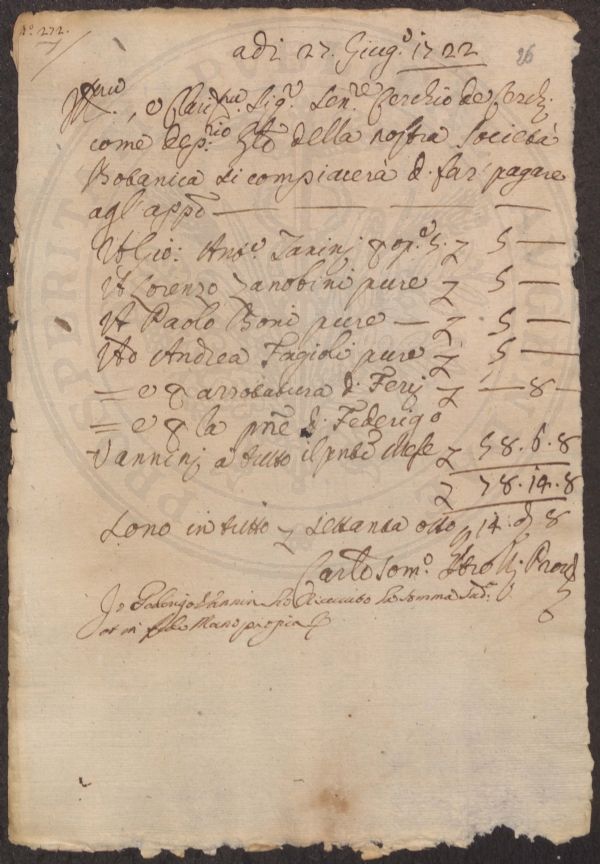 N.° 272.
26
adi 27. Giug.° 1722
Ill.mo, e Clariss.mo Sig.r Sen.re Cerchio de Cerchi
come dep.rio Gñle della nostra Società
Botanica si compiacerà di far pagare
agl'appti — — — — —
A Gio: Ant.o Vanini p op.e 5. 5 —
A Lorenzo Zanobini pure 5 —
A Paolo Boni pure — 5 —
Ad Andrea Fagioli pure 5 —
= e p arrotatura di Ferj — 8 —
= e p la pñe di Federigo
Vannini a tutto il pñte Mese 58. 6. 8
78. 14. 8
sono in tutto settanta otto 14. 8
Carlo Tom.o
Io Federigo Vannini ho Ricevuto la somma Sud.a
Mano propia